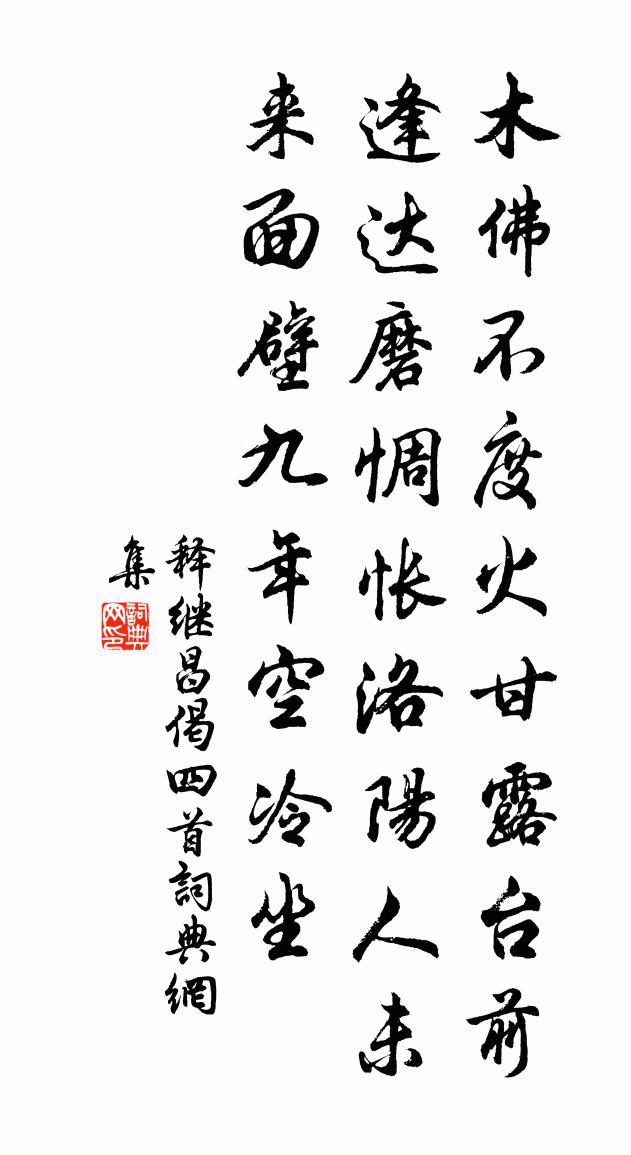 木佛不度火甘露台前
逢达磨惆怅洛陽人未
来面壁九年空冷坐
释继昌偈四首詞典網
集
詞典网印